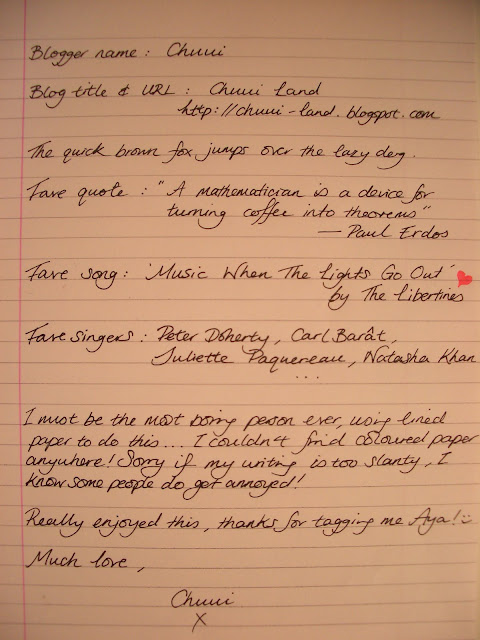 Blogger name : Chuui
Blog title & URL : Chuui Land
http://chuui-land.blogspot.com
The quick brown fox jumps over the lazy derg.
Fave quote : "A mathematician is a device for
turning coffee into theorems"
— Paul Erdos
Fave song : 'Music When The Lights Go Out' ♥
by The Libertines
Fave singers : Peter Doherty, Carl Barât,
Juliette Paquereau, Natasha Khan
...
I must be the most boring person ever, using lined
paper to do this.... I couldn't find coloured paper
anywhere! Sorry if my writing is too slanty, I
know some people do get annoyed!
Really enjoyed this, thanks for tagging me Aya! :)
Much love,
Chuui
X